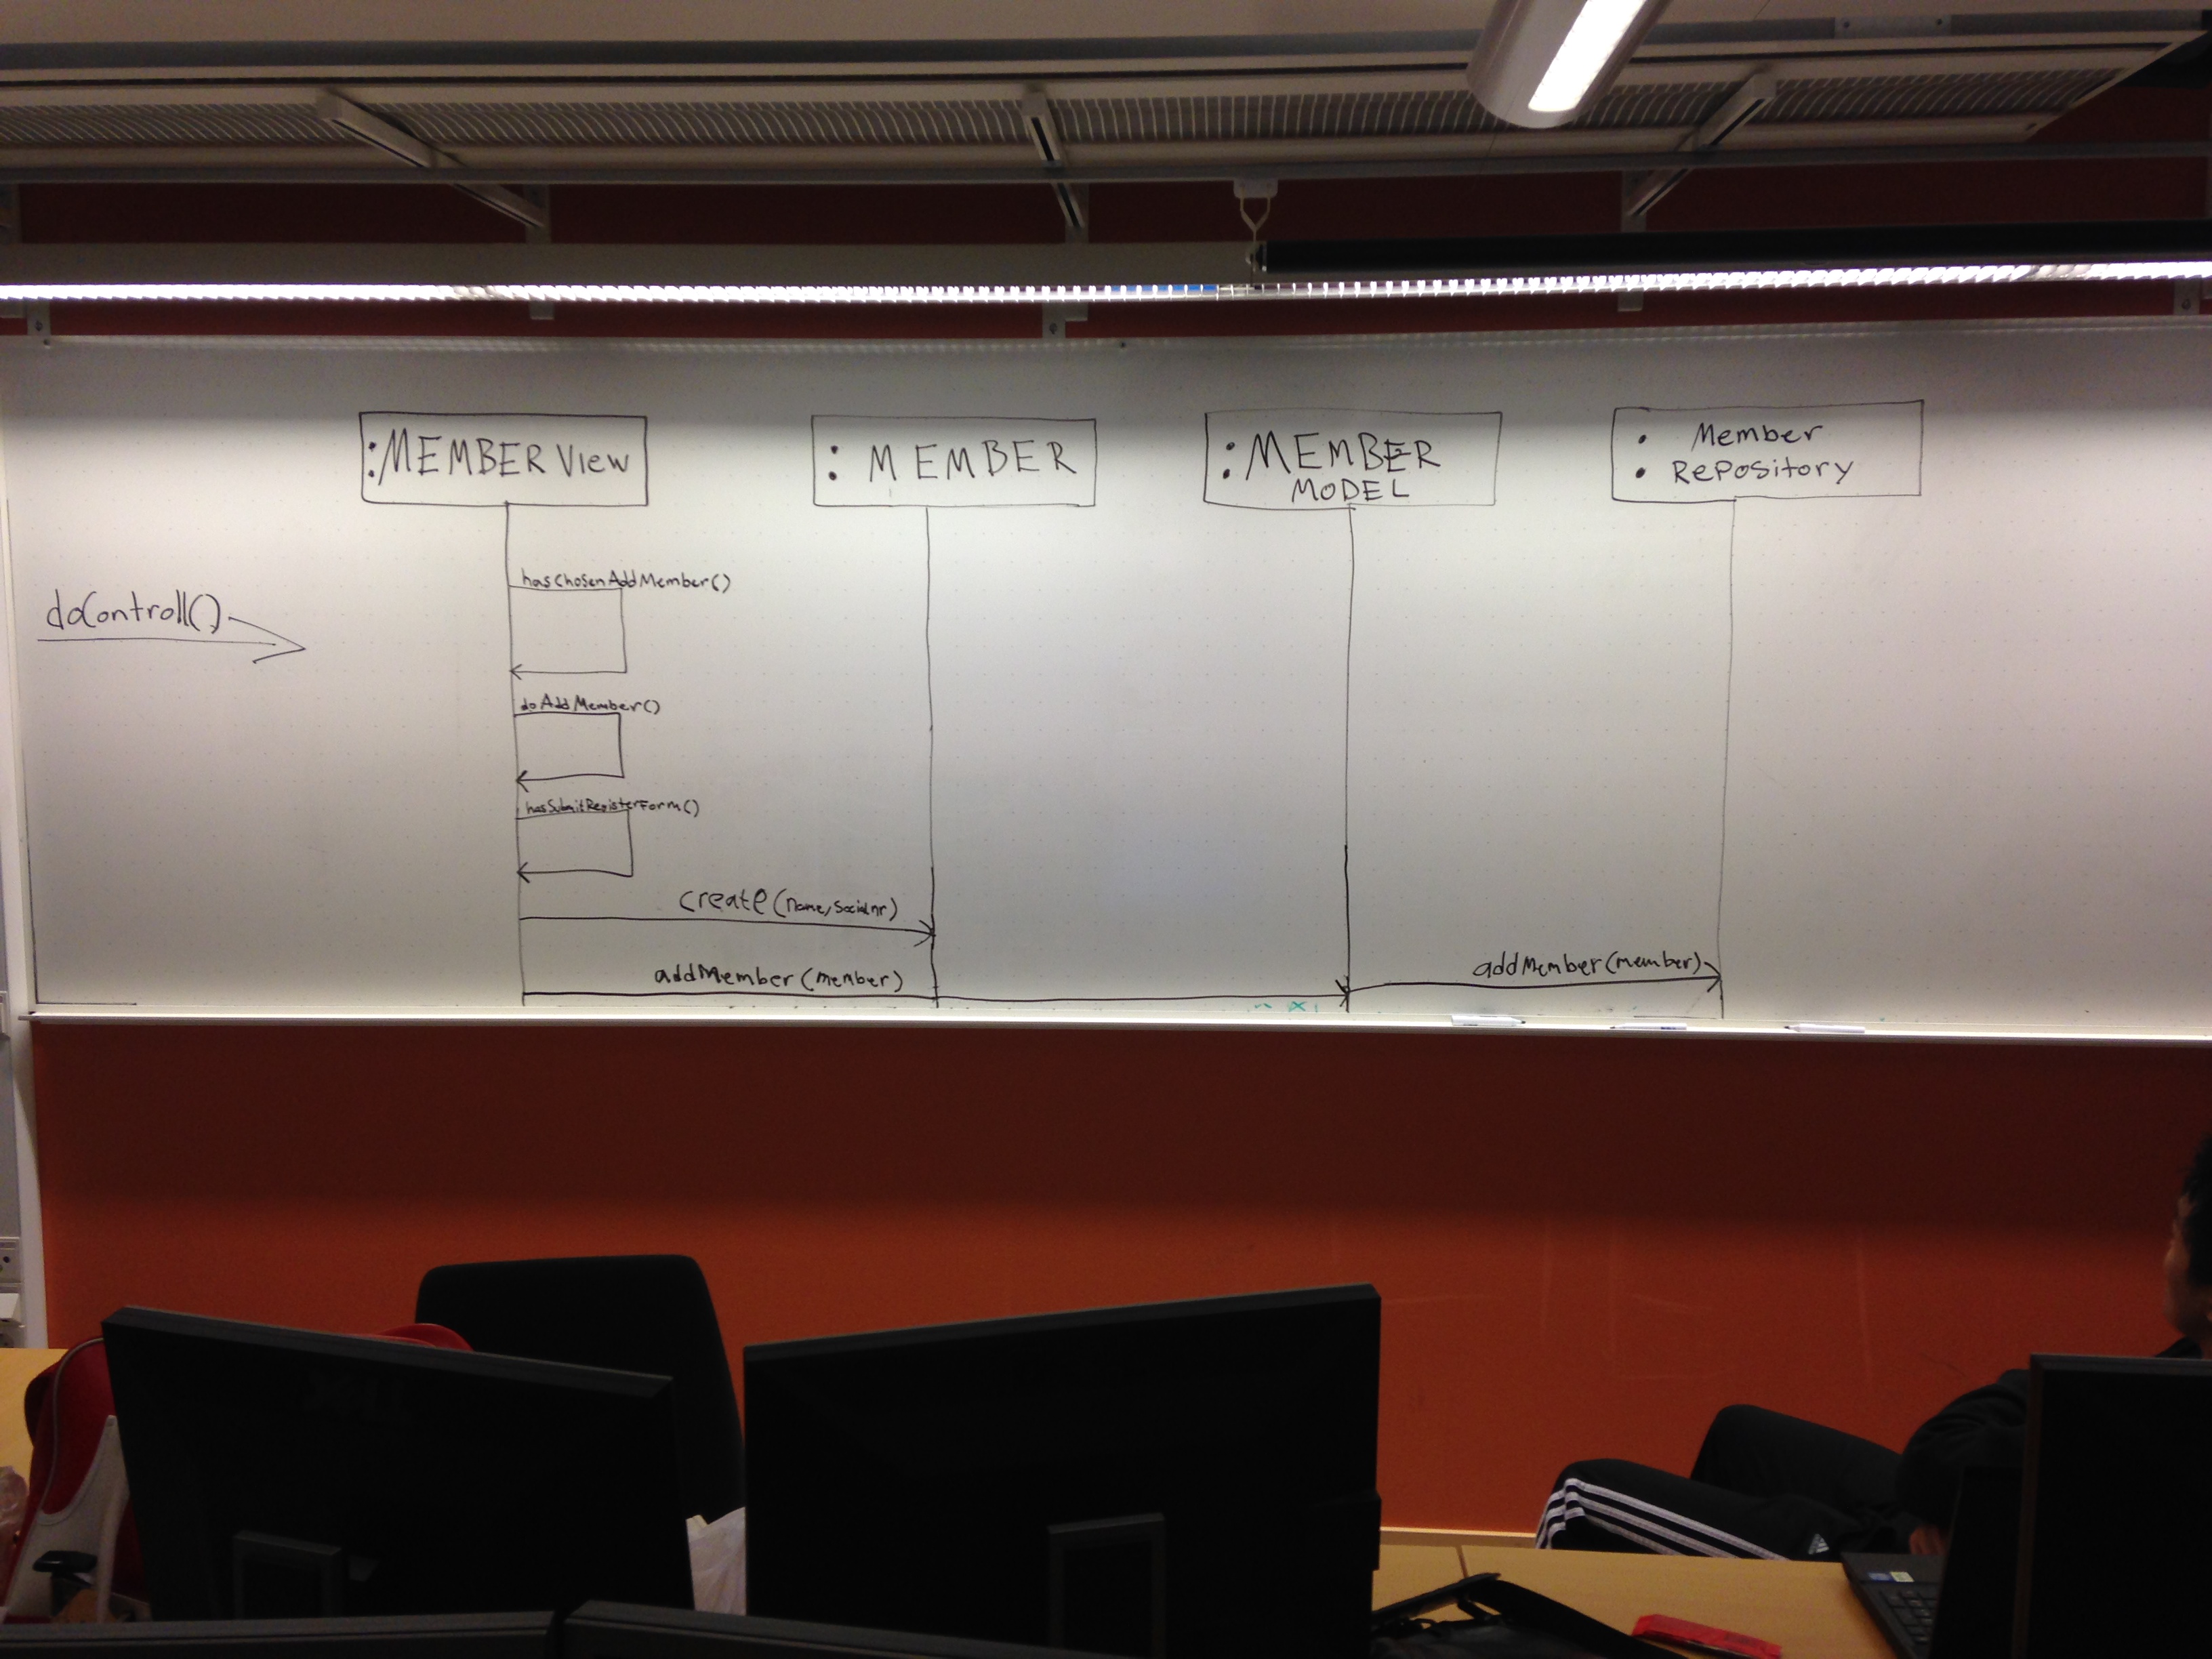 :MEMBER View
: MEMBER
:MEMBER
MODEL
: Member
Repository
hasChosenAddMember()
doControll()
doAddMember()
hasSubmitRegisterForm()
create(name, socialnr)
addMember(member)
addMember(member)